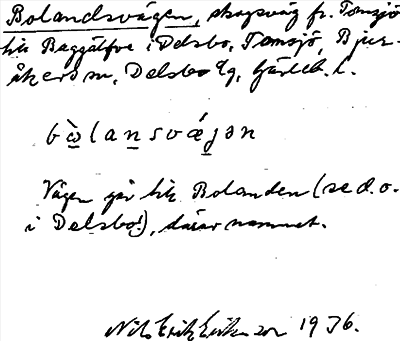 Bolandsvägen, skogsväg fr. Tomsjö
till Baggälve i Delsbo, Tomsjö, Bjur-
åkers sn, Delsbo tg, Gävleb. l.
bὼlansvǽjən
Vägen går till Bolanden (se d. o.
i Delsbo!), därav namnet.
Nils Erik Eriksson 1936.